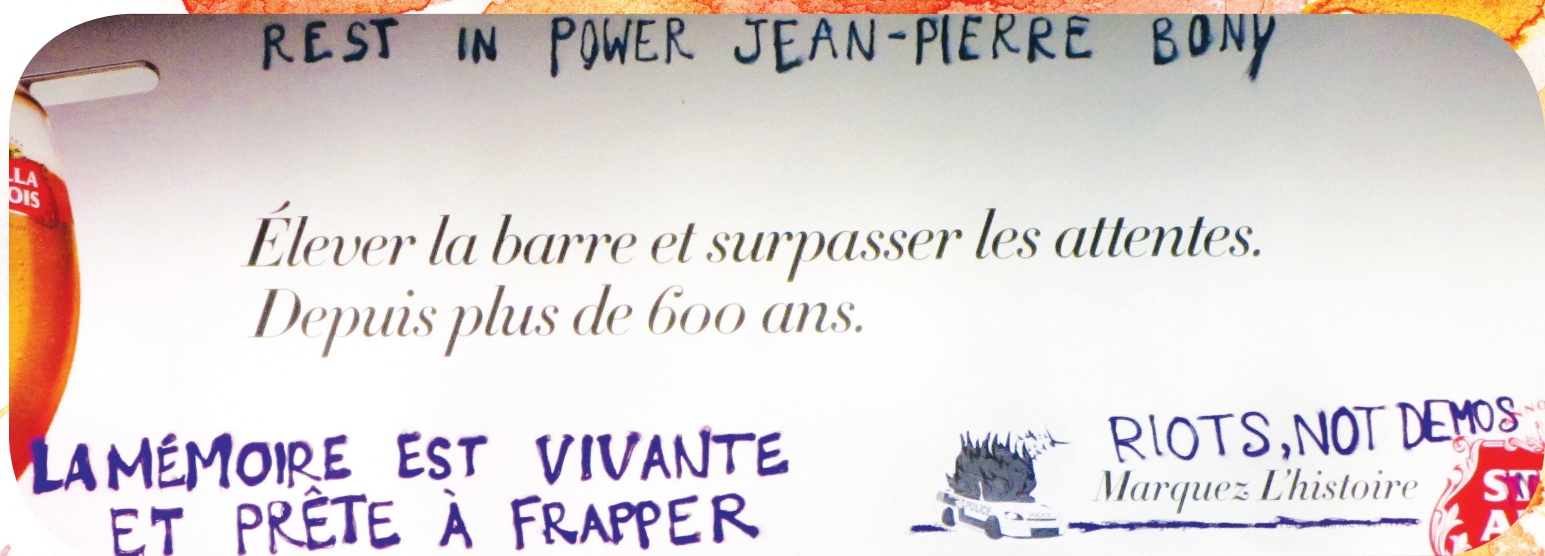 REST IN POWER JEAN-PIERRE BONY
LLA
OIS
Élever la barre et surpasser les attentes.
Depuis plus de 600 ans.
LA MÉMOIRE EST VIVANTE
ET PRÊTE À FRAPPER
RIOTS, NOT DEMOS
Marquez L'histoire
POLICE
POLICE
ST
A